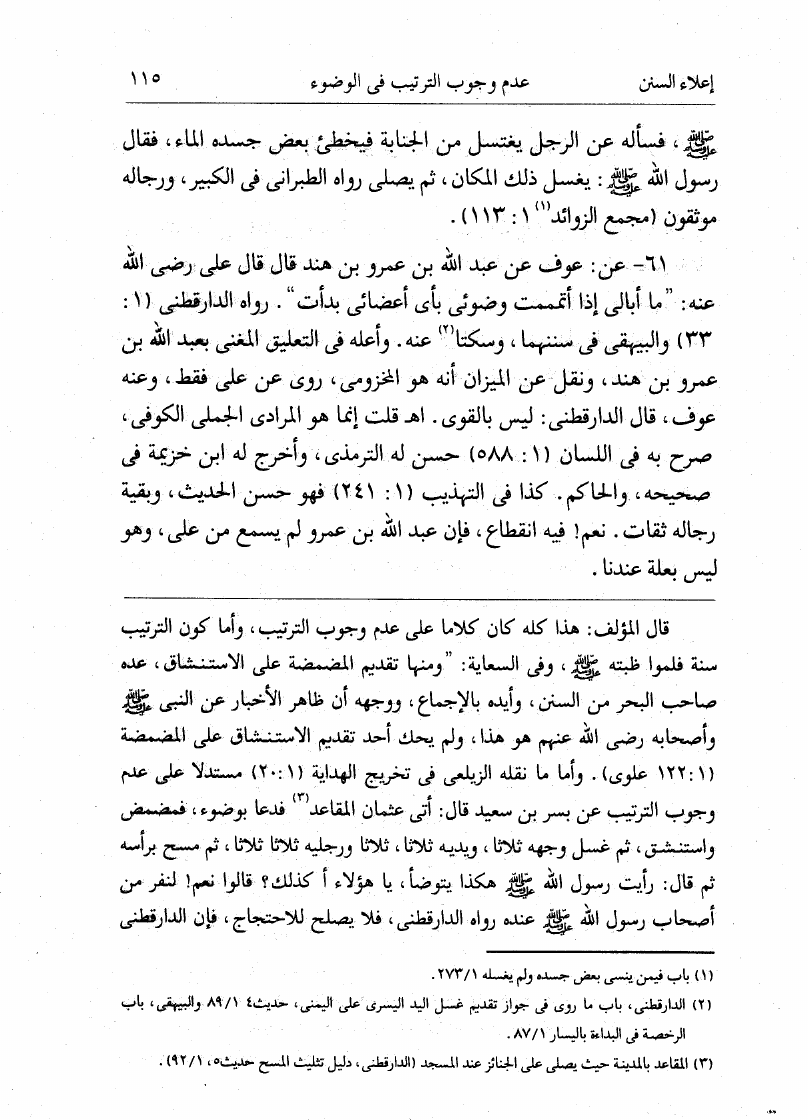 إعلاء السنن عدم وجوب الترتيب فى الوضوء ١١٥
ﷺ، فسأله عن الرجل يغتسل من الجنابة فيخطئ بعض جسده الماء، فقال
رسول الله ﷺ: يغسل ذلك المكان، ثم يصلى رواه الطبرانى فى الكبير، ورجاله
موثقون (مجمع الزوائد(١) ١: ١١٣).
٦١- عن: عوف عن عبد الله بن عمرو بن هند قال قال على رضى الله
عنه: ”ما أبالى إذا أتممت وضوئى بأى أعضائى بدأت“. رواه الدارقطنى (١:
٣٣) والبيهقى فى سننهما، وسكتا(٢) عنه. وأعله فى التعليق المغنى بعبد الله بن
عمرو بن هند، ونقل عن الميزان أنه هو المخزومى، روى عن على فقط، وعنه
عوف، قال الدارقطنى: ليس بالقوى. اهـ قلت إنما هو المرادى الجملى الكوفى،
صرح به فى اللسان (١: ٥٨٨) حسن له الترمذى، وأخرج له ابن خزيمة فى
صحيحه، والحاكم. كذا فى التهذيب (١: ٢٤١) فهو حسن الحديث، وبقية
رجاله ثقات. نعم! فيه انقطاع، فإن عبد الله بن عمرو لم يسمع من على، وهو
ليس بعلة عندنا.
قال المؤلف: هذا كله كان كلاما على عدم وجوب الترتيب، وأما كون الترتيب
سنة فلموا ظبته ﷺ، وفى السعاية: ”ومنها تقديم المضمضة على الاستنشاق، عده
صاحب البحر من السنن، وأيده بالإجماع، ووجهه أن ظاهر الأخبار عن النبى ﷺ
وأصحابه رضى الله عنهم هو هذا، ولم يحك أحد تقديم الاستنشاق على المضمضة
(١٢٢:١ علوى). وأما ما نقله الزيلعى فى تخريج الهداية (٢٠:١) مستدلا على عدم
وجوب الترتيب عن بسر بن سعيد قال: أتى عثمان المقاعد(٣) فدعا بوضوء، فمضمض
واستنشق، ثم غسل وجهه ثلاثا، ويديه ثلاثا، ثلاثا ورجليه ثلاثا ثلاثا، ثم مسح برأسه
ثم قال: رأيت رسول الله ﷺ هكذا يتوضأ، يا هؤلاء أ كذلك؟ قالوا نعم! لنفر من
أصحاب رسول الله ﷺ عنده رواه الدارقطنى، فلا يصلح للاحتجاج، فإن الدارقطنى
(١) باب فيمن ينسى بعض جسده ولم يغسله ٢٧٣/١.
(٢) الدارقطنى، باب ما روى فى جواز تقديم غسل اليد اليسرى على اليمنى، حديث٤ ٨٩/١ والبيهقى، باب
الرخصة فى البداءة باليسار ٨٧/١.
(٣) المقاعد بالمدينة حيث يصلى على الجنائز عند المسجد (الدارقطنى، دليل تثليث المسح حديث٥، ٩٢/١).